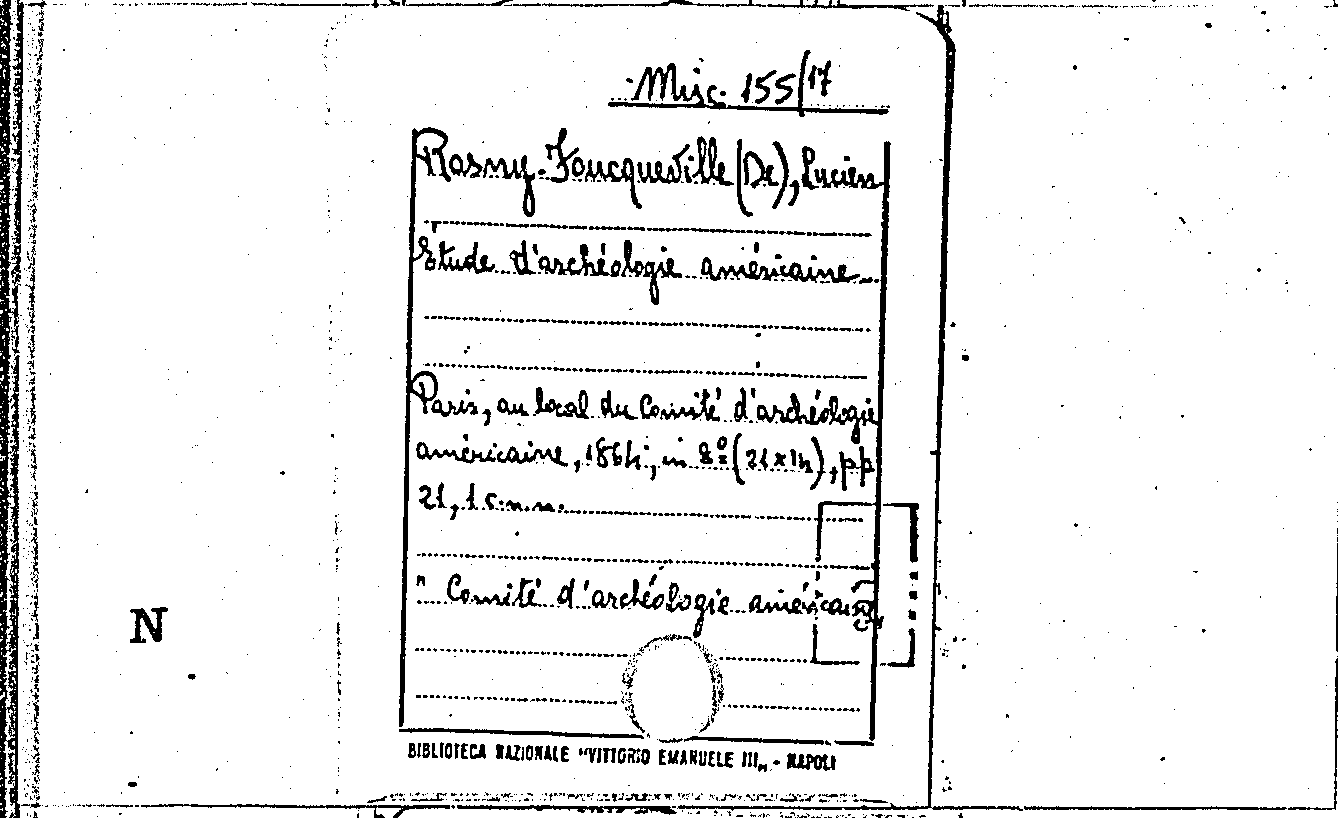 Misc. 155/17
Rosny-Foucqueville (De), Lucien
Étude d'archéologie américaine...
Paris, au local du Comité d'archéologie
américaine, 1864, in 8º (21x14), pp
21, 1 c.n.n.
" Comité d'archéologie américaine
N
BIBLIOTECA NAZIONALE "VITTORIO EMANUELE III„ - NAPOLI